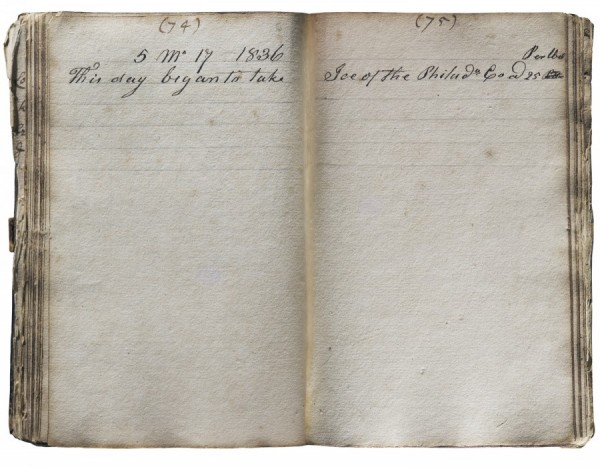 (74)
5 Mo 17 1836
This day began to take
(75)
Per
Ice of the Philada Co a 25